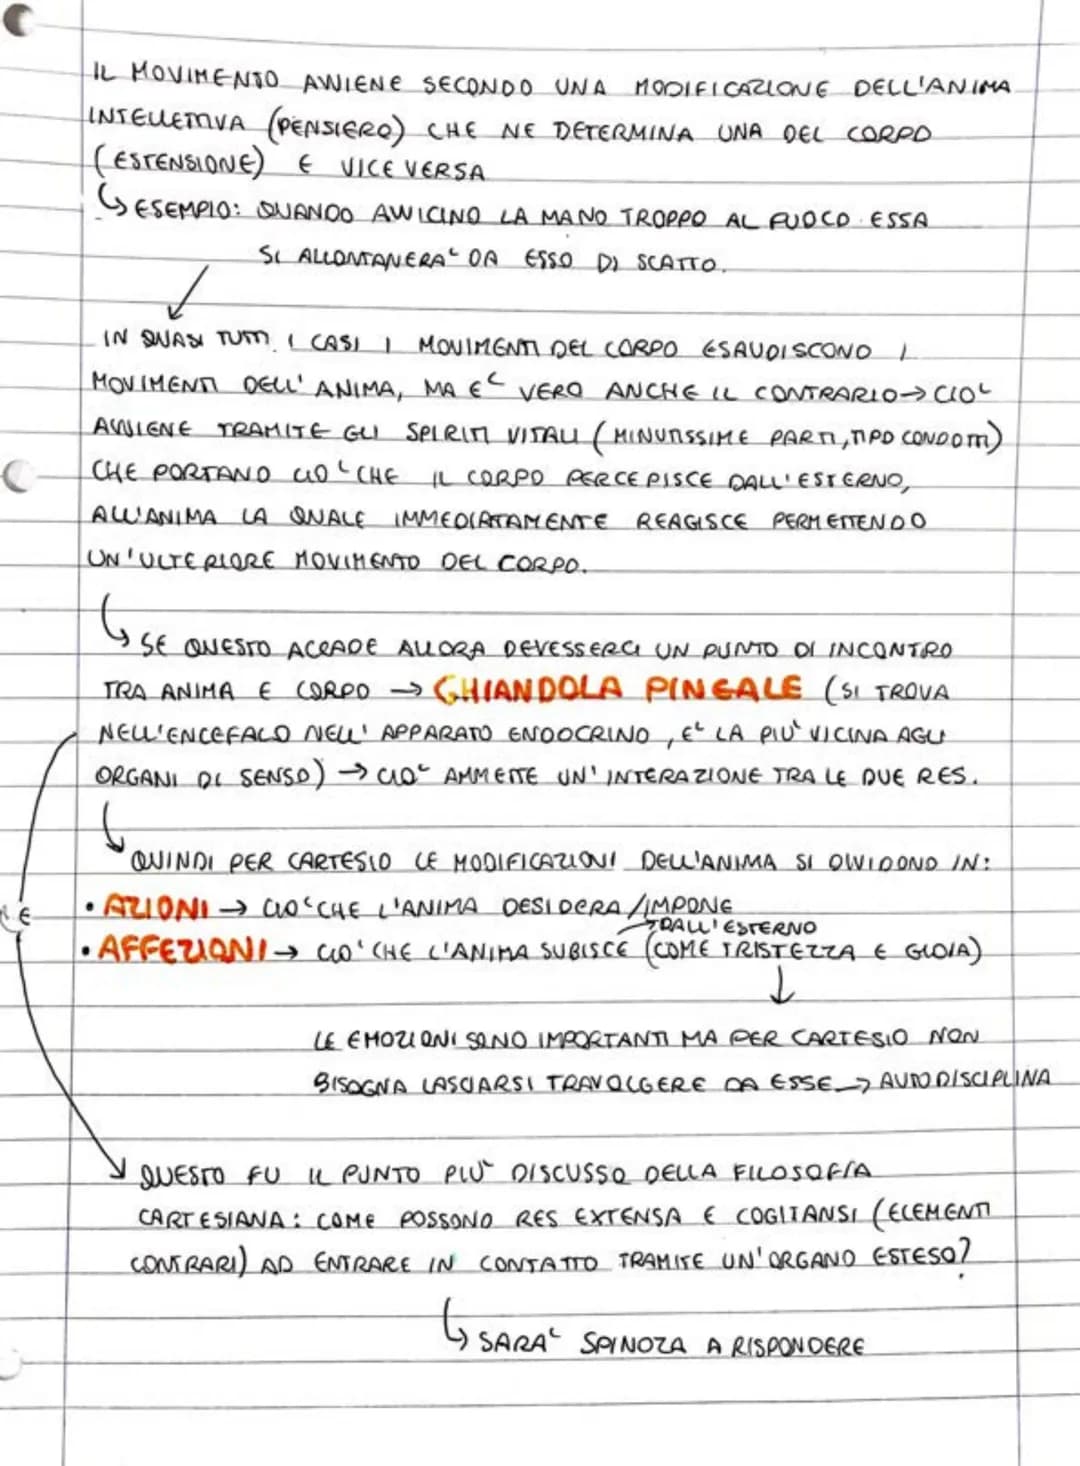 IL MOVIMENTO AVVIENE SECONDO UNA MODIFICAZIONE DELL'ANIMA
INTELLETTIVA (PENSIERO) CHE NE DETERMINA UNA DEL CORPO
(ESTENSIONE) E VICEVERSA
↳ ESEMPIO: QUANDO AVVICINO LA MANO TROPPO AL FUOCO ESSA
SI ALLONTANERA' DA ESSO DI SCATTO.
IN QUASI TUTTI I CASI I MOVIMENTI DEL CORPO ESAUDISCONO I
MOVIMENTI DELL'ANIMA, MA E' VERO ANCHE IL CONTRARIO → CIO'
AVVIENE TRAMITE GLI SPIRITI VITALI (MINUTISSIME PARTI, TIPO CONDOTTI)
CHE PORTANO CIO' CHE IL CORPO PERCEPISCE DALL'ESTERNO,
ALL'ANIMA LA QUALE IMMEDIATAMENTE REAGISCE PERMETTENDO
UN'ULTERIORE MOVIMENTO DEL CORPO.
↳ SE QUESTO ACCADE ALLORA DEVESSERCI UN PUNTO DI INCONTRO
TRA ANIMA E CORPO → GHIANDOLA PINEALE (SI TROVA
NELL'ENCEFALO NELL'APPARATO ENDOCRINO, E' LA PIU' VICINA AGLI
ORGANI DI SENSO) → CIO' AMMETTE UN'INTERAZIONE TRA LE DUE RES.
↳ QUINDI PER CARTESIO LE MODIFICAZIONI DELL'ANIMA SI DIVIDONO IN:
• AZIONI → CIO' CHE L'ANIMA DESIDERA/IMPONE
→ DALL'ESTERNO
• AFFEZIONI → CIO' CHE L'ANIMA SUBISCE (COME TRISTEZZA E GIOIA)
LE EMOZIONI SONO IMPORTANTI MA PER CARTESIO NON
BISOGNA LASCIARSI TRAVOLGERE DA ESSE → AUTODISCIPLINA
QUESTO FU IL PUNTO PIU' DISCUSSO DELLA FILOSOFIA
CARTESIANA: COME POSSONO RES EXTENSA E COGITANSI (ELEMENTI
CONTRARI) AD ENTRARE IN CONTATTO TRAMITE UN'ORGANO ESTESO?
↳ SARA' SPINOZA A RISPONDERE